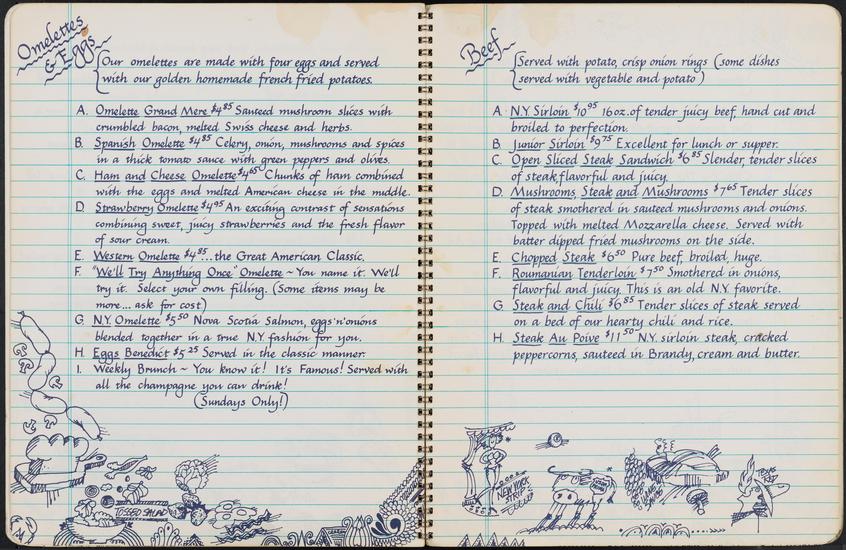 Omelettes
& Eggs
Our omelettes are made with four eggs and served
with our golden homemade french fried potatoes.
A. Omelette Grand Mere $4.85 Sauteed mushroom slices with
crumbled bacon, melted Swiss cheese and herbs.
B. Spanish Omelette $4.85 Celery, onion, mushrooms and spices
in a thick tomato sauce with green peppers and olives.
C. Ham and Cheese Omelette $4.65 Chunks of ham combined
with the eggs and melted American cheese in the middle.
D. Strawberry Omelette $4.95 An exciting contrast of sensations
combining sweet, juicy strawberries and the fresh flavor
of sour cream.
E. Western Omelette $4.85...the Great American Classic.
F. "We'll Try Anything Once" Omelette ~ You name it. We'll
try it. Select your own filling. (Some items may be
more... ask for cost)
G. N.Y. Omelette $5.50 Nova Scotia Salmon, eggs 'n' onions
blended together in a true N.Y. fashion for you.
H. Eggs Benedict $5.25 Served in the classic manner.
I. Weekly Brunch ~ You know it! It's Famous! Served with
all the champagne you can drink!
(Sundays Only!)
TOSSED SALAD
Beef
Served with potato, crisp onion rings (some dishes
served with vegetable and potato)
A. N.Y. Sirloin $10.95 16oz. of tender juicy beef, hand cut and
broiled to perfection.
B. Junior Sirloin $9.75 Excellent for lunch or supper.
C. Open Sliced Steak Sandwich $6.85 Slender, tender slices
of steak, flavorful and juicy.
D. Mushrooms, Steak and Mushrooms $7.65 Tender slices
of steak smothered in sauteed mushrooms and onions.
Topped with melted Mozzarella cheese. Served with
batter dipped fried mushrooms on the side.
E. Chopped Steak $6.50 Pure beef, broiled, huge.
F. Roumanian Tenderloin $7.50 Smothered in onions,
flavorful and juicy. This is an old N.Y. favorite.
G. Steak and Chili $6.85 Tender slices of steak served
on a bed of our hearty chili and rice.
H. Steak Au Poive $11.50 N.Y. sirloin steak, cracked
peppercorns, sauteed in Brandy, cream and butter.
NEW YORK
STRIP
TEXAS